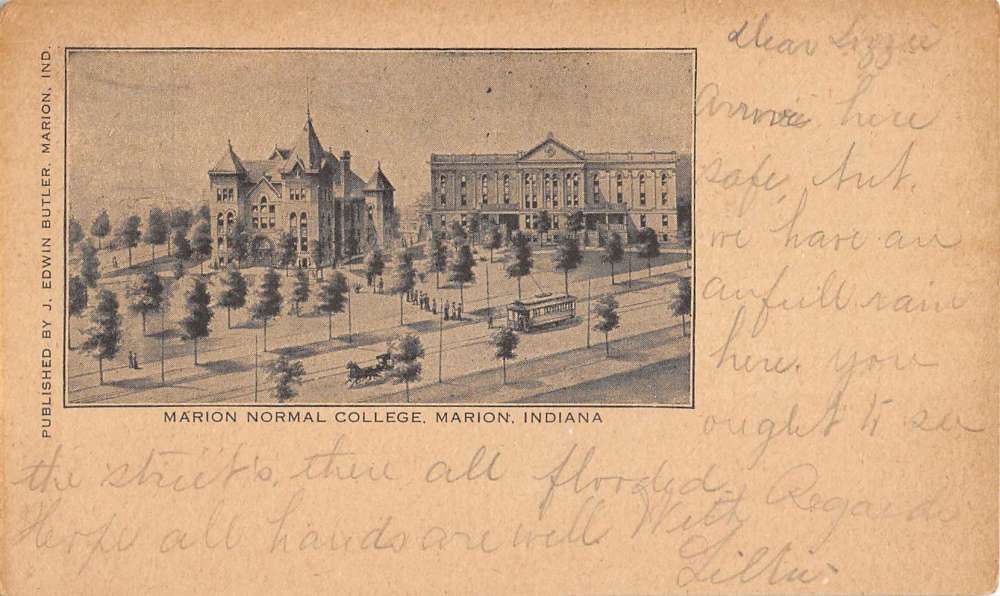 PUBLISHED BY J. EDWIN BUTLER, MARION, IND.
MARION NORMAL COLLEGE, MARION, INDIANA
Dear Lizzie
Arrive here
safe, but.
we have an
anfull rain
here. you
ought to see
the street's, there all flooded,
Hope all hands are well With Regards
Lillie